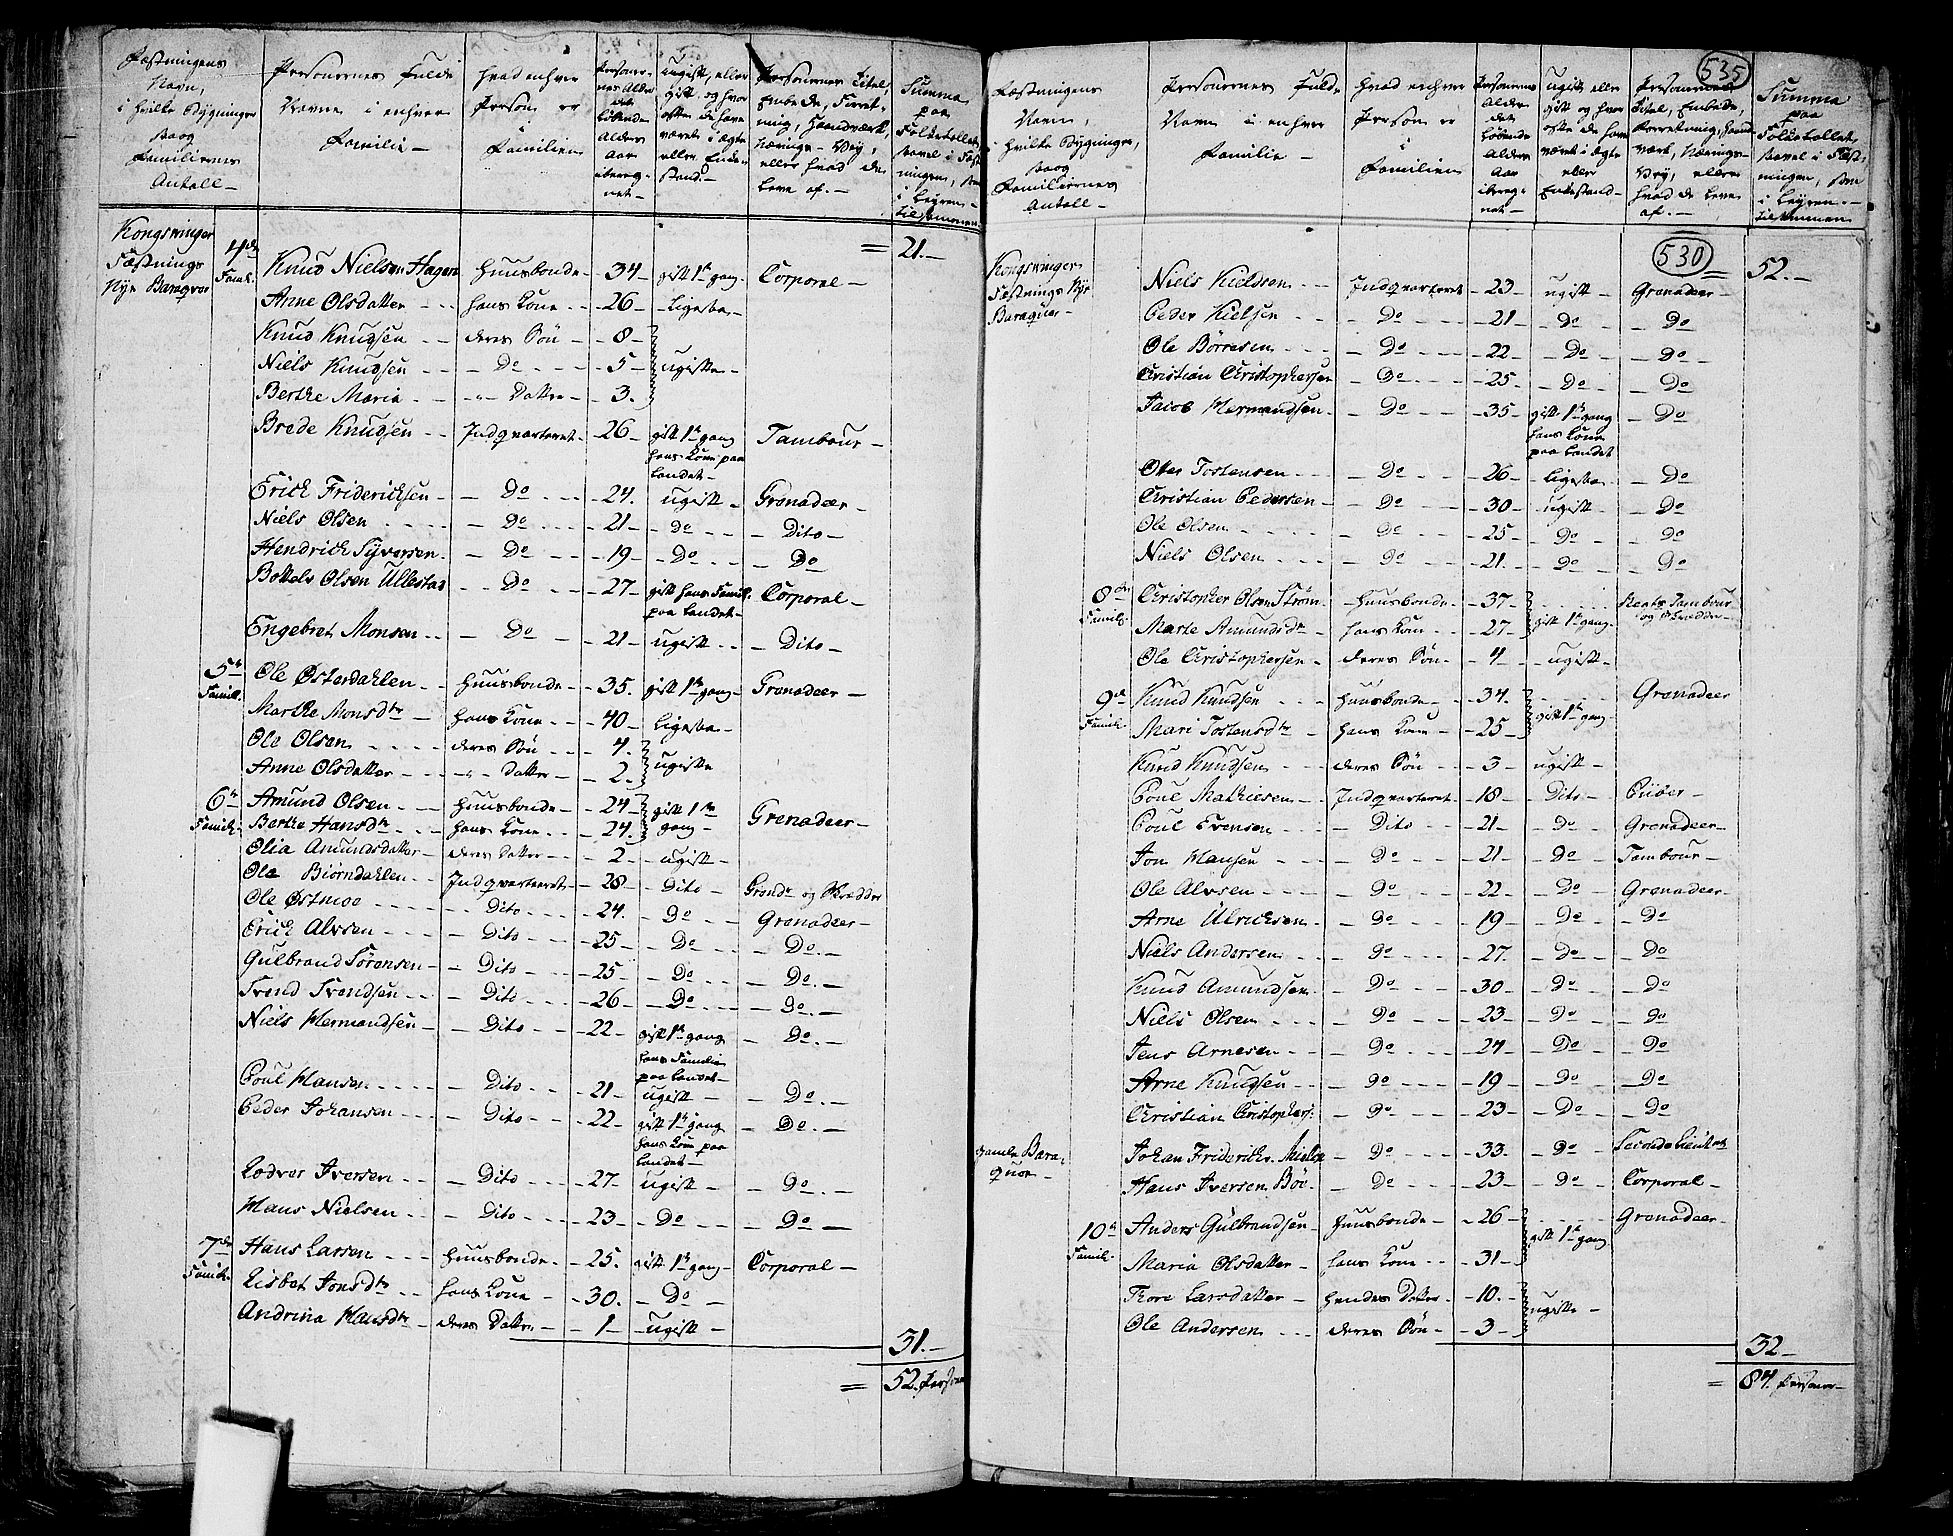 Fæstningens Navn, i hvilke Bygninger samt Familiernes Antall –
Personernes fulde Navne i enhver Familie –
hvad enhver Person er i Familien
Personernes Alder det løbende Alders Aar iberegnet –
ugift, eller gift, og hvor ofte de have været i Ægte eller Enkestand. –
Personernes Titel, Embede, Forretning, Haandværk, Nærings-Vey, eller hvad de leve af. –
Summa paa Folketallet
21. –
Kongswinger Fæstnings Nye Baraquer
4de Famil.
Knud Nielsen Hagen huusbonde – 34 – gift 1te gang – Corporal –
Anne Olsdatter hans Kone – 26 – Ligesaa –
Knud Knudsen – deres Søn – 8 –
Niels Knudsen – Do – 5 – ugifte –
Berthe Maria – " – Datter – 3.
Brede Knudsen – Indqvarteret – 26 – gift 1te gang hans Kone paa Landet – Tambour –
Erick Fridericksen – Do – 24. ugift – Grenadeer –
Niels Olsen – Do – 21 – do – Dito –
Hendrick Syversen – Do – 19 – Do – Do
Bottels Olsen Ullestad – Do – 27 – gift hans Famil. paa Landet – Corporal –
Engebret Monsen – Do – 21 – ugift – Dito –
5te Famil.
Ole Østerdahlen – huusbonde – 35. gift 1te gang – Grenadeer –
Marthe Monsdtr – hans Kone – 40 – Ligesaa –
Ole Olsen – deres Søn – 4.
Anne Olsdatter – " – Datter – 2. ugifte
6te Famil.
Amund Olsen – huusbonde – 24 – gift 1te gang – Grenadeer –
Berthe Hansdtr – hans Kone – 24.
Olia Amundsdatter – deres Datter – 2 – ugift –
Ole Biörndahlen – Indqvarteret – 28 – Dito – Grendr og Skrædder
Ole Østmoe – Dito – 24. – Do – Grenadeer –
Erick Alvsen – Dito – 25 – Do – Do. –
Gulbrand Sörensen – Dito – 25 – Do – Do. –
Trond Trondsen – Dito – 26 – Do – Do. –
Niels Hermandsen – Dito – 22 – gift 1te gang hans Familie paa Landet – Do. –
Poul Hansen – Dito – 21 – ugift – Do. –
Peder Johansen – Dito – 22 – gift 1te gang hans Kone paa Landet – Do. –
Lodver Iversen – Dito – 27 – ugift – Do. –
Hans Nielsen – Dito – 23 – Do – Do –
7de Famil.
Hans Larsen – huusbonde – 25. gift 1te gang – Corporal –
Lisbet Jonsdtr – hans Kone – 30. – Do –
Andrina Hansdtr – deres Datter – 1 – ugift –
31. –
= 52. Personer
535
Fæstningens Navn, i hvilke Bygninger, samt Familiernes Antall –
Personernes fulde Navn i enhver Familie –
hvad enhver Person er i Familien
Personernes Alder det løbende Alders Aar iberegnet –
ugift eller gift og hvor ofte de have været i Ægte eller Enkestand –
Personernes Titel, Embede, Forretning, Haandværk, Nærings-Vey, eller hvad de leve af. –
Summa paa Folketallet, saavel i Fæstningen, som i Leyren – tilsammen
530
= 52. –
Kongswinger Fæstnings Nye Baraquer –
Niels Kieldsen Indqvarteret – 23 – ugift – Grenadeer –
Peder Kielsen – Do – 21 – Do – Do
Ole Börresen – Do – 22 – Do – Do
Christian Christophersen – Do – 25 – Do – Do
Jacob Hermandsen – Do – 35 – gift 1te gang hans Kone paa Landet – Do
Ober Tostensen – Do – 26 – Ligesaa – Do
Christian Pedersen – Do – 30 – ugift – Do
Ole Olsen – Do – 25 – Do – Do
Niels Olsen – Do – 21. – Do – Do
8de Famil.
Christopher Olsen Ström – huusbonde – 37 – Regts Tambour og Skrædder –
Marte Amundsdr – hans Kone – 27 – gift 1te gang –
Ole Christophersen – deres Søn – 4 – ugift –
9de Famil.
Knud Knudsen – huusbonde – 34. – Grenadeer
Mari Tostensdtr – hans Kone – 25 – gift 1te gang –
Knud Knudsen – deres Søn – 3 – ugift –
Poul Mathiesen – Indqvarteret – 18 – Dito – Piiber –
Poul Evensen – Dito – 21 – Do – Grenadeer –
Jon Hansen – Do – 21 – Do – Tambour –
Ole Alvsen – Do – 22 – Do – Grenadeer –
Arne Ulricksen – Do – 19 – Do – Do
Niels Andersen – Do – 27. – Do – Do
Knud Amundsen – Do – 30 – Do – Do
Niels Olsen – Do – 23 – Do – Do
Jens Arnesen – Do – 24 – Do – Do
Arne Knudsen – Do – 19 – Do – Do
Christian Christophers: – Do – 23 – Do – Do
gamle Baraquer –
Johan Friderichs – Do – 33 – Do – Seconde Lieutnt
Hans Iversen Böe – Do – 23 – Do – Corporal –
10de Famil.
Anders Gulbrandsen – huusbonde – 26 – Grenadeer –
Maria Olsdatter – hans Kone – 31 – gift 1te gang
Thore Larsdatter – hendes Datter – 10. –
Ole Andersen – deres Søn – 3 – ugifte –
32 –
= 84. Personer –